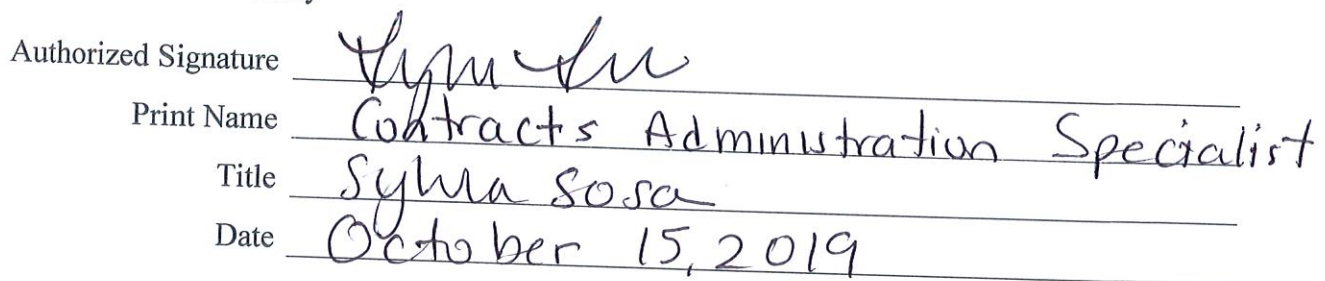 Authorized Signature
Print Name Contracts Administration Specialist
Title Sylvia Sosa
Date October 15, 2019